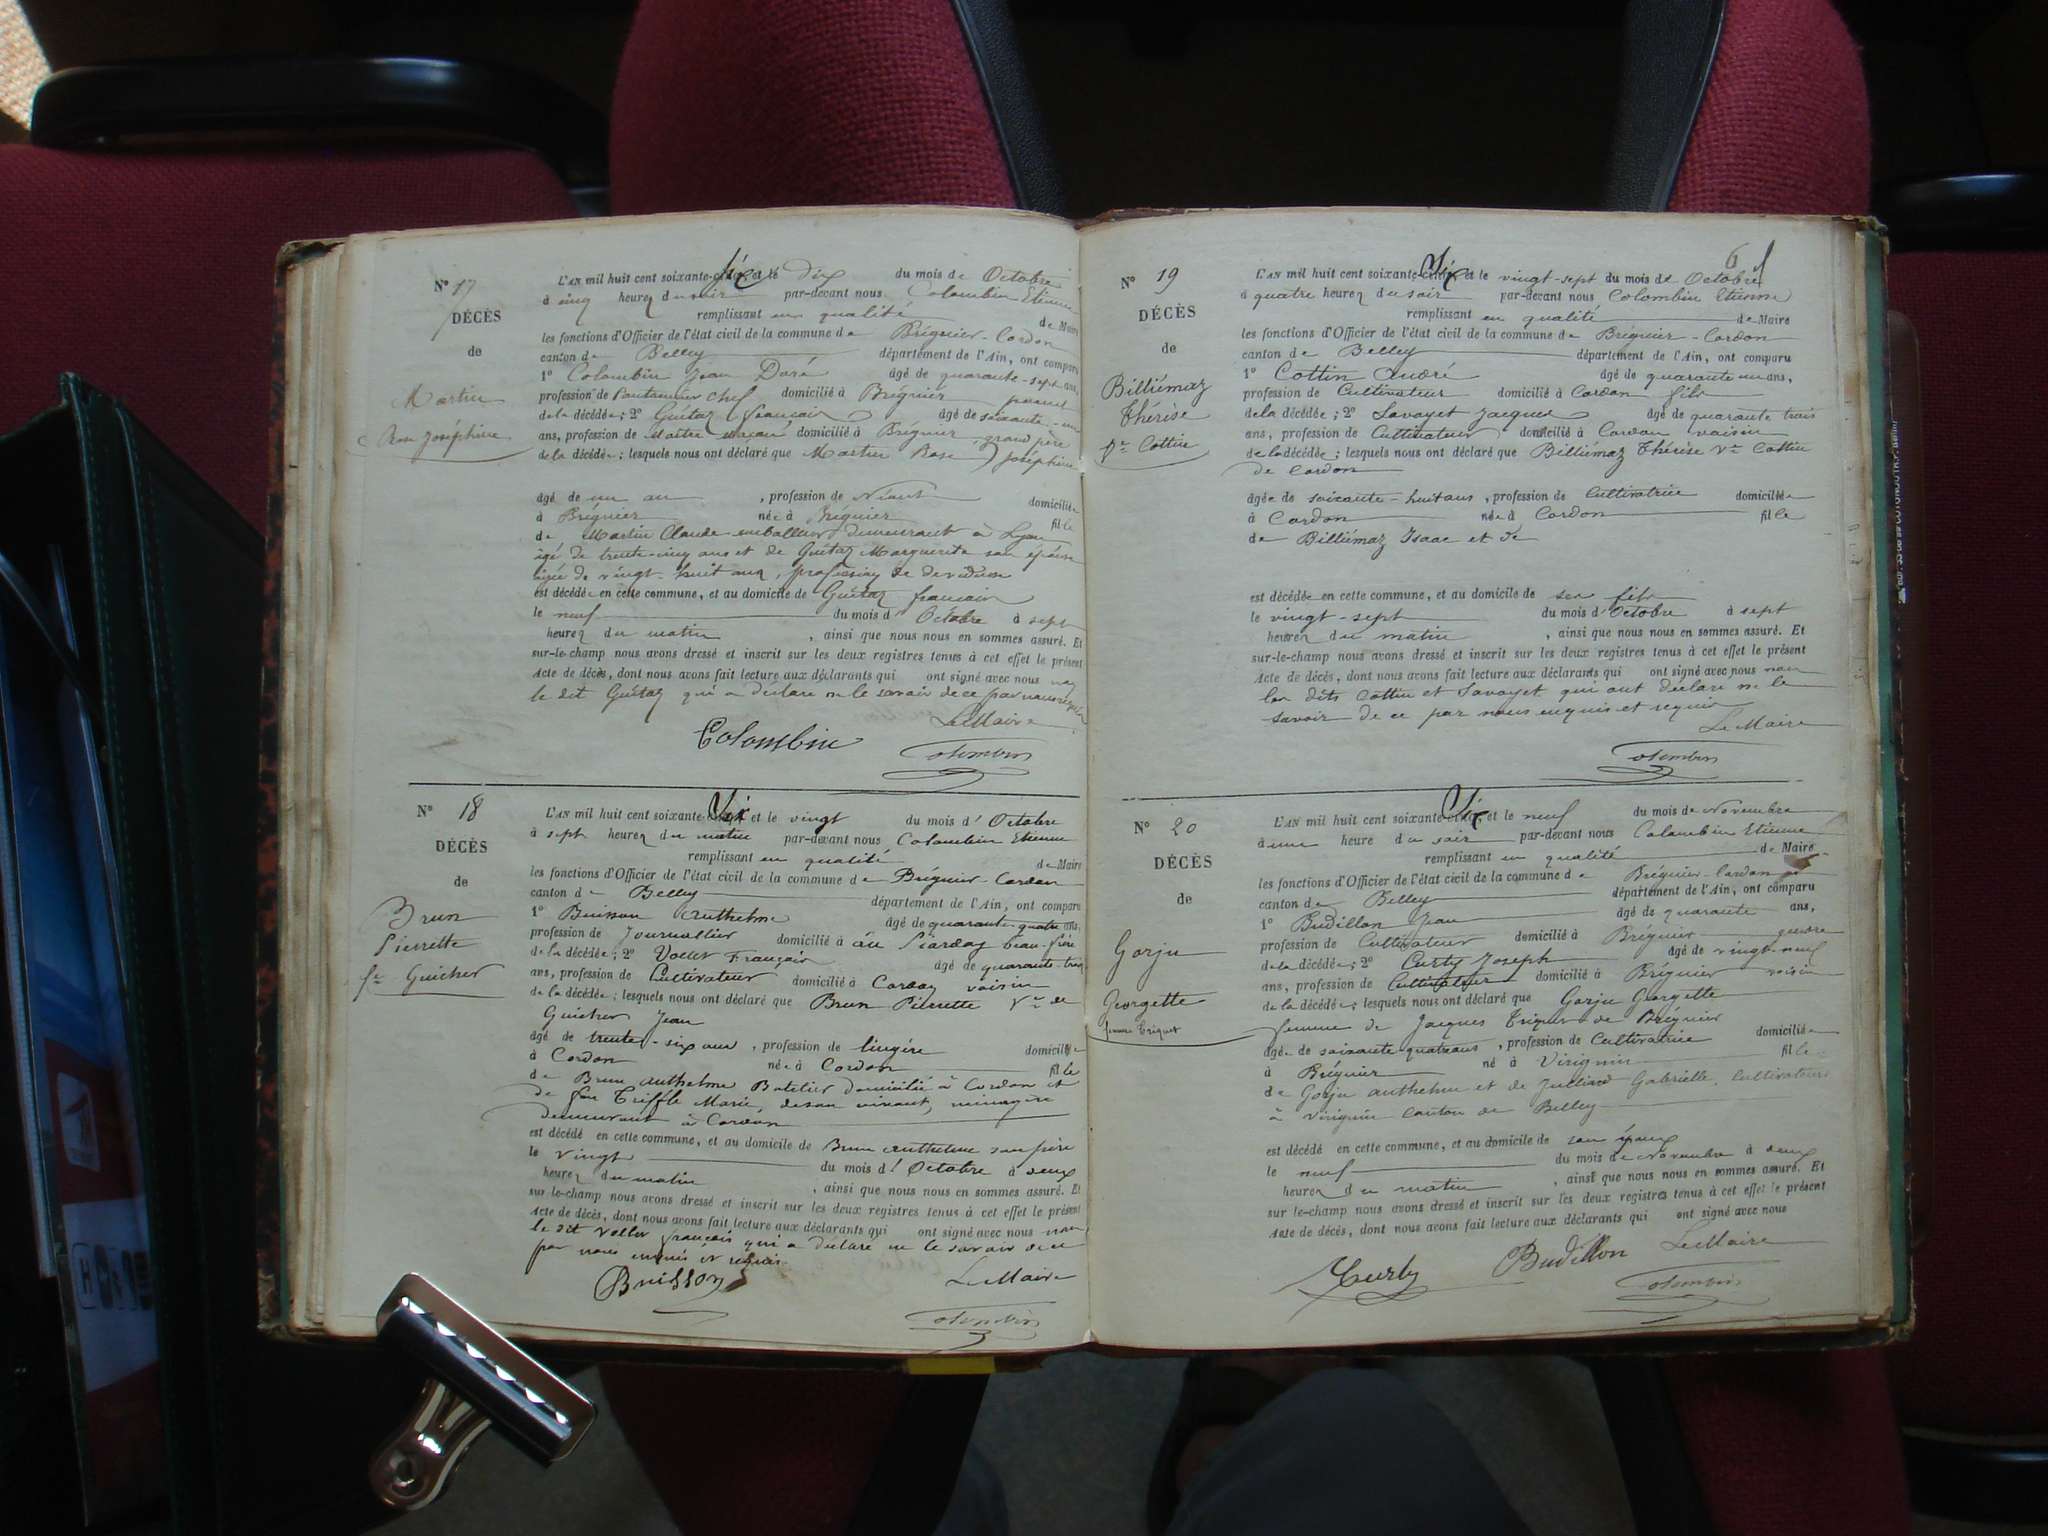 Nº 17
DÉCÈS
de
Martin
Rose Joséphine
L'AN mil huit cent soixante-six et le dix du mois de Octobre
à cinq heures du soir par-devant nous Colombin Etienne
remplissant en qualité de Maire
les fonctions d'Officier de l'état civil de la commune de Brégnier-Cordon
canton de Belley département de l'Ain, ont comparu
1º Colombin Jean Doré âgé de quarante-sept ans,
profession de chef domicilié à Brégnier
de la décédée; 2º Guétaz français âgé de soixante-un
ans, profession de Maître maçon domicilié à Brégnier, grand père
de la décédée; lesquels nous ont déclaré que Martin Rose Joséphine
âgé de un an, profession de Néant domiciliée
à Brégnier née à Brégnier fille
de Martin Claude emballeur demeurant à Lyon
âgé de trente-cinq ans et de Guétaz Marguerite son épouse
âgée de vingt-huit ans, profession de dévideuse
est décédée en cette commune, et au domicile de Guétaz français
le neuf du mois d'Octobre à sept
heures du matin, ainsi que nous nous en sommes assuré. Et
sur-le-champ nous avons dressé et inscrit sur les deux registres tenus à cet effet le présent
Acte de décès, dont nous avons fait lecture aux déclarants qui ont signé avec nous non
le dit Guétaz qui a déclaré ne le savoir de ce par nous requis
Le Maire
Colombin
Colombin
Nº 18
DÉCÈS
de
Brun
Pierrette
Vve Guicher
L'AN mil huit cent soixante-six et le vingt du mois d'Octobre
à sept heures du matin par-devant nous Colombin Etienne
remplissant en qualité de Maire
les fonctions d'Officier de l'état civil de la commune de Brégnier-Cordon
canton de Belley département de l'Ain, ont comparu
1º Buisson Anthelme âgé de quarante-quatre ans,
profession de Journallier domicilié à beau-frère
de la décédée; 2º Vollet Français âgé de quarante-trois
ans, profession de Cultivateur domicilié à Cordon voisin
de la décédée; lesquels nous ont déclaré que Brun Pierrette Vve de
Guicher Jean
âgé de trente-six ans, profession de lingère domiciliée
à Cordon née à Cordon fille
de Brun Anthelme Batelier domicilié à Cordon et
de feu Triffle Marie, de son vivant, ménagère
demeurant à Cordon
est décédé en cette commune, et au domicile de Brun Anthelme son père
le vingt du mois d'Octobre à deux
heures du matin, ainsi que nous nous en sommes assuré. Et
sur-le-champ nous avons dressé et inscrit sur les deux registres tenus à cet effet le présent
Acte de décès, dont nous avons fait lecture aux déclarants qui ont signé avec nous non
le dit Vollet français qui a déclaré ne le savoir de ce
par nous enquis et requis
Buisson
Le Maire
Colombin
6
Nº 19
DÉCÈS
de
Billiémaz
Thérèse
Vve Cottin
L'AN mil huit cent soixante-six et le vingt-sept du mois de Octobre
à quatre heures du soir par-devant nous Colombin Etienne
remplissant en qualité de Maire
les fonctions d'Officier de l'état civil de la commune de Brégnier-Cordon
canton de Belley département de l'Ain, ont comparu
1º Cottin André âgé de quarante un ans,
profession de Cultivateur domicilié à Cordon fils
de la décédée; 2º Savoyet Jacques âgé de quarante trois
ans, profession de Cultivateur domicilié à Cordon voisin
de la décédée; lesquels nous ont déclaré que Billiémaz Thérèse Vve Cottin
de Cordon
âgée de soixante-huit ans, profession de Cultivatrice domiciliée
à Cordon née à Cordon fille
de Billiémaz Isaac et de
est décédée en cette commune, et au domicile de son fils
le vingt-sept du mois d'Octobre à sept
heures du matin, ainsi que nous nous en sommes assuré. Et
sur-le-champ nous avons dressé et inscrit sur les deux registres tenus à cet effet le présent
Acte de décès, dont nous avons fait lecture aux déclarants qui ont signé avec nous non
les dits Cottin et Savoyet qui ont déclaré ne le
savoir de ce par nous enquis et requis
Le Maire
Colombin
Nº 20
DÉCÈS
de
Gorju
Georgette
femme Triquet
L'AN mil huit cent soixante-six et le neuf du mois de Novembre
à une heure du soir par-devant nous Colombin Etienne
remplissant en qualité de Maire
les fonctions d'Officier de l'état civil de la commune de Brégnier-Cordon
canton de Belley département de l'Ain, ont comparu
1º Budillon Jean âgé de quarante ans,
profession de Cultivateur domicilié à Brégnier gendre
de la décédée; 2º Curty Joseph âgé de vingt-neuf
ans, profession de Cultivateur domicilié à Brégnier voisin
de la décédée; lesquels nous ont déclaré que Gorju Georgette
femme de Jacques Triquet de Brégnier
âgée de soixante-quatre ans, profession de Cultivatrice domiciliée
à Brégnier né à Virignin fille
de Gorju Anthelme et de Julliard Gabrielle, Cultivateurs
à Virignin Canton de Belley
est décédé en cette commune, et au domicile de son époux
le neuf du mois de Novembre à deux
heures du matin, ainsi que nous nous en sommes assuré. Et
sur-le-champ nous avons dressé et inscrit sur les deux registres tenus à cet effet le présent
Acte de décès, dont nous avons fait lecture aux déclarants qui ont signé avec nous
Curty
Budillon
Le Maire
Colombin